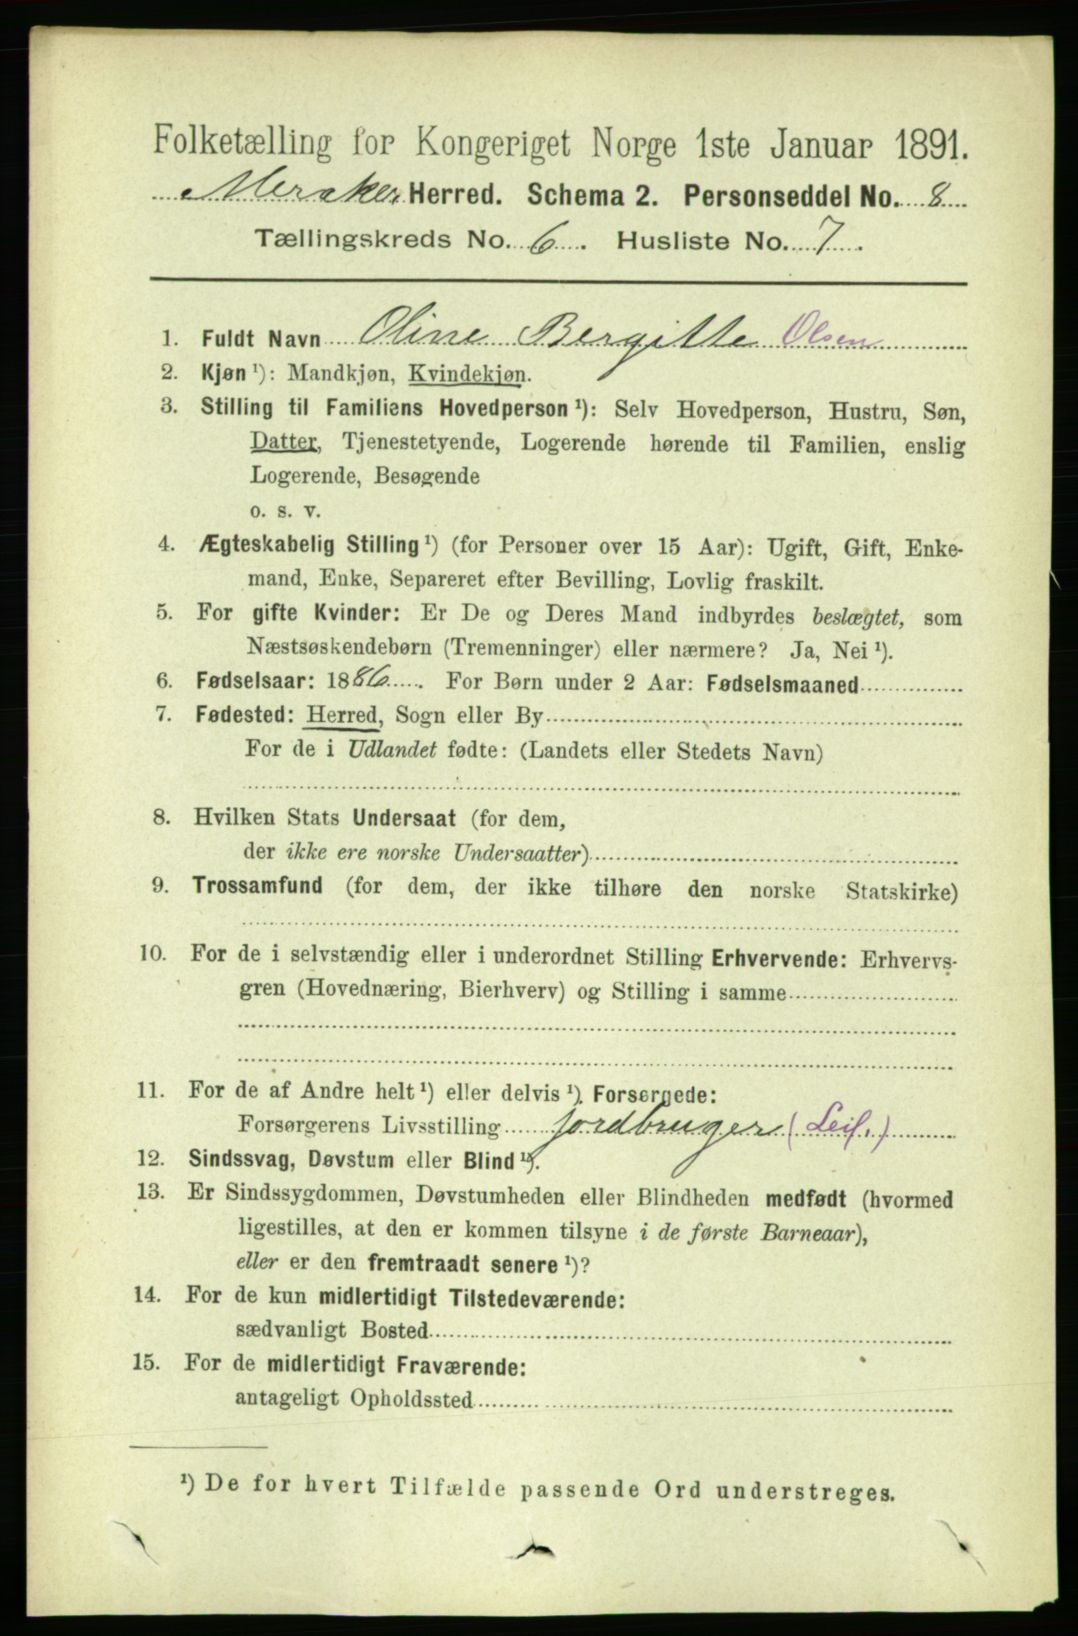 Folketælling for Kongeriget Norge 1ste Januar 1891.
Meraker Herred. Schema 2. Personseddel No. 8
Tællingskreds No. 6. Husliste No. 7.
1. Fuldt Navn Oline Bergitte Olsen
2. Kjøn ¹): Mandkjøn, Kvindekjøn.
3. Stilling til Familiens Hovedperson ¹): Selv Hovedperson, Hustru, Søn,
Datter, Tjenestetyende, Logerende hørende til Familien, enslig
Logerende, Besøgende
o. s. v.
4. Ægteskabelig Stilling ¹) (for Personer over 15 Aar): Ugift, Gift, Enke-
mand, Enke, Separeret efter Bevilling, Lovlig fraskilt.
5. For gifte Kvinder: Er De og Deres Mand indbyrdes beslægtet, som
Næstsøskendebørn (Tremenninger) eller nærmere? Ja, Nei ¹).
6. Fødselsaar: 1886. For Børn under 2 Aar: Fødselsmaaned
7. Fødested: Herred, Sogn eller By
For de i Udlandet fødte: (Landets eller Stedets Navn)
8. Hvilken Stats Undersaat (for dem,
der ikke ere norske Undersaatter)
9. Trossamfund (for dem, der ikke tilhøre den norske Statskirke)
10. For de i selvstændig eller i underordnet Stilling Erhvervende: Erhvervs-
gren (Hovednæring, Bierhverv) og Stilling i samme
11. For de af Andre helt ¹) eller delvis ¹) Forsørgede:
Forsørgerens Livsstilling jordbruger (Leil.)
12. Sindssvag, Døvstum eller Blind ¹).
13. Er Sindssygdommen, Døvstumheden eller Blindheden medfødt (hvormed
ligestilles, at den er kommen tilsyne i de første Barneaar),
eller er den fremtraadt senere ¹)?
14. For de kun midlertidigt Tilstedeværende:
sædvanligt Bosted
15. For de midlertidigt Fraværende:
antageligt Opholdssted
¹) De for hvert Tilfælde passende Ord understreges.